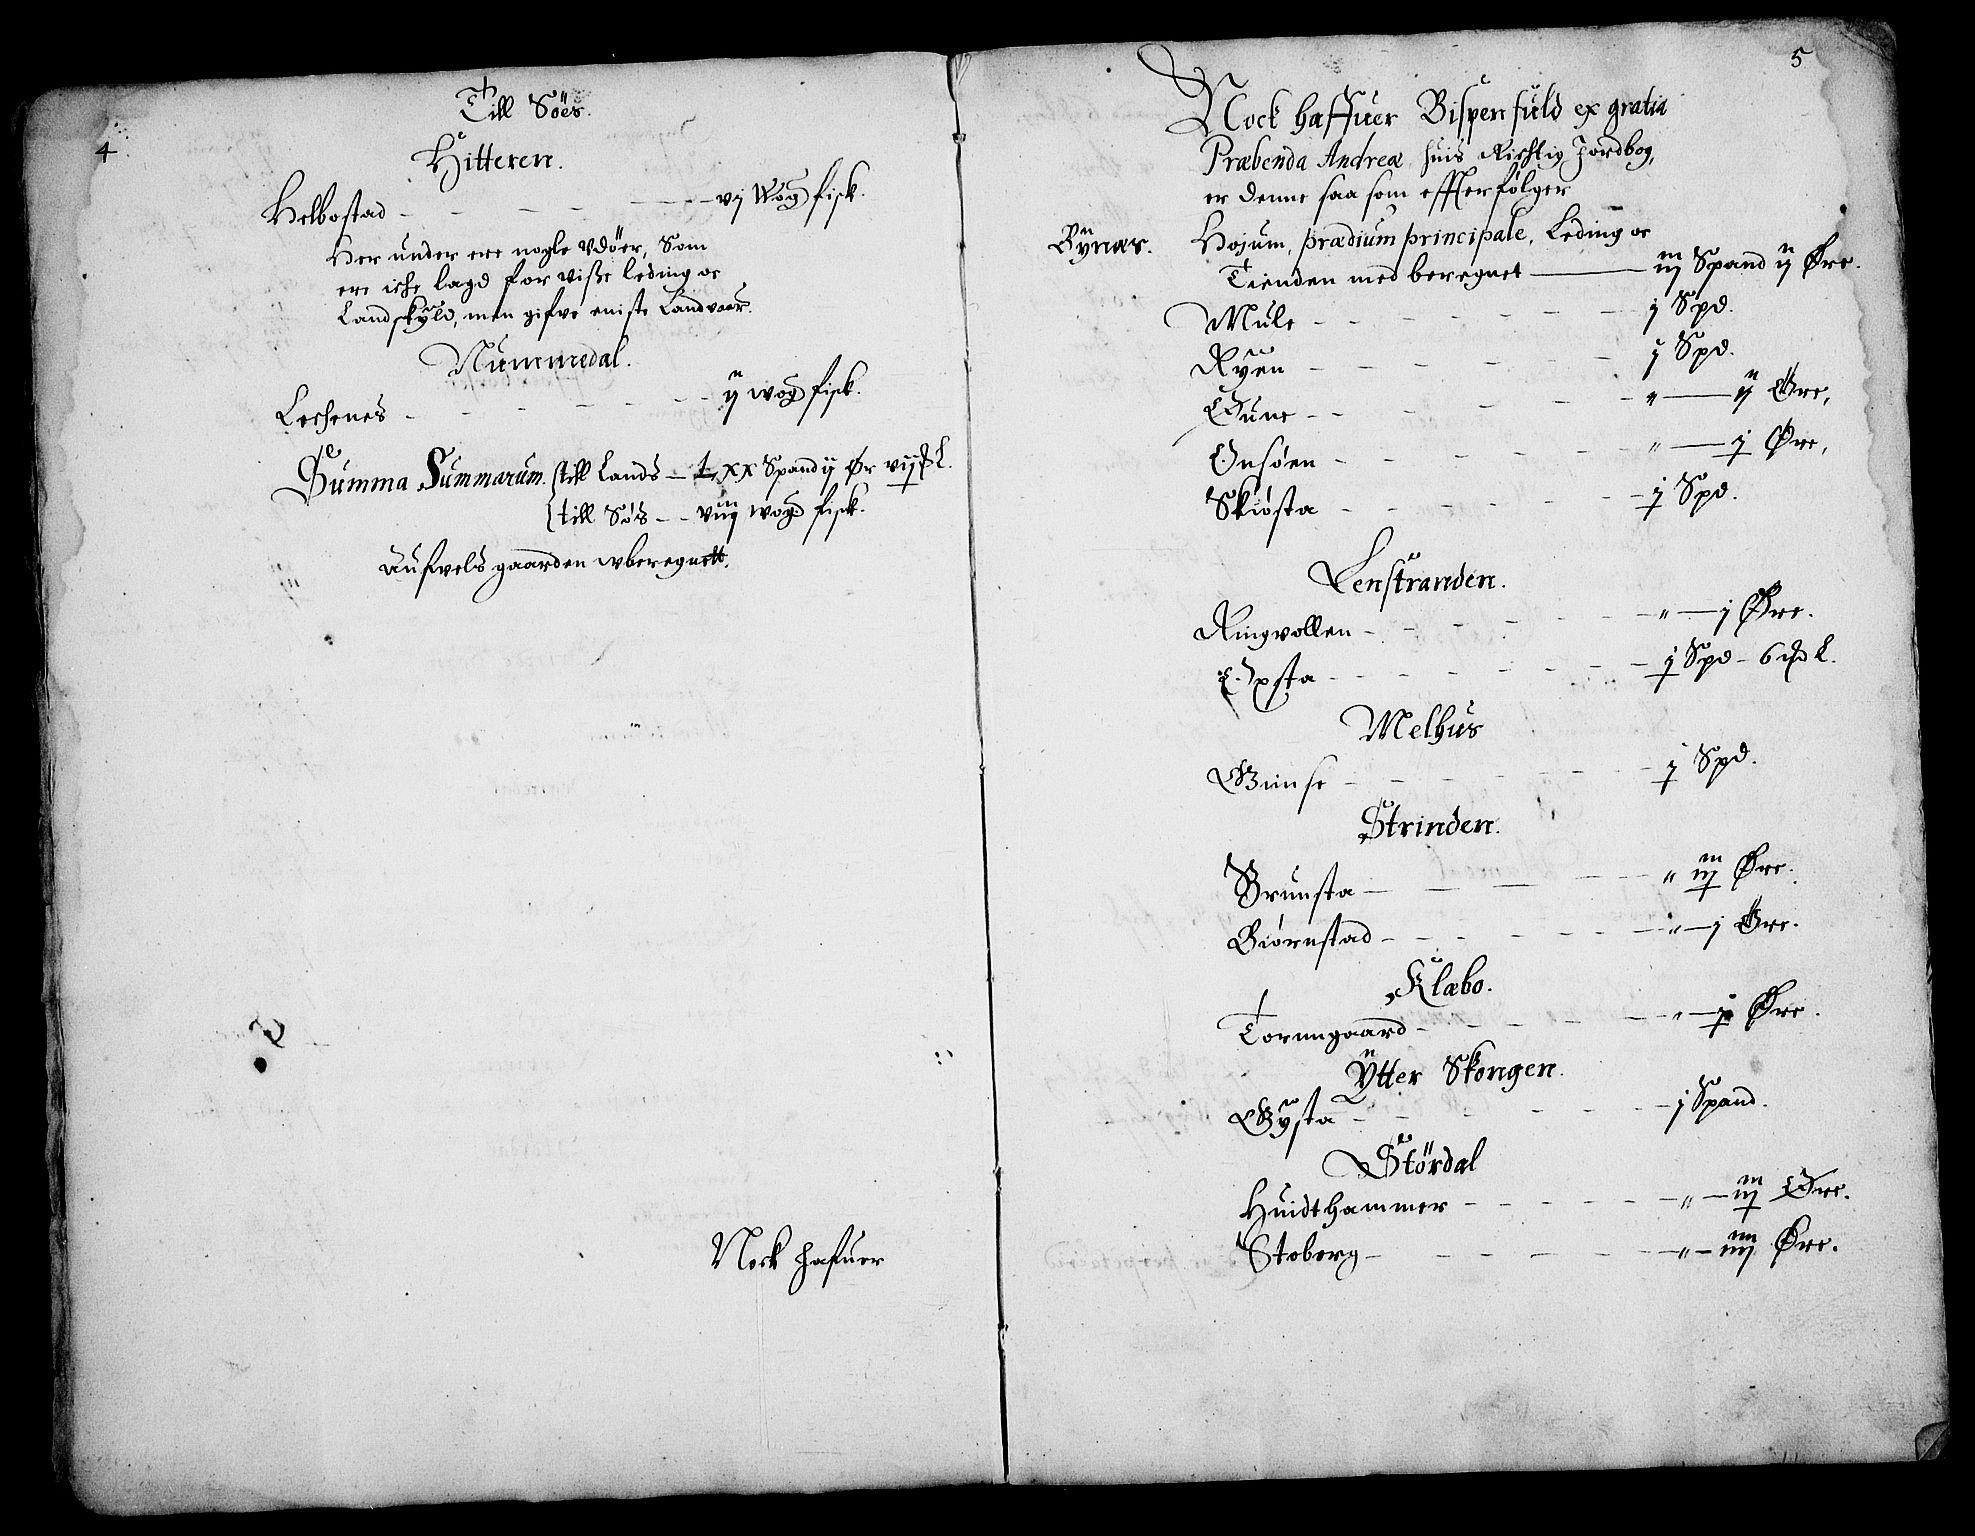 4
Till Söes.
Hitteren.
Helbostad - - - - - - vj Wog fisk.
Her under ere nogle Vdöer, Som
ere iche lagd for visse leding oc
Landskyld, men gifve eniste Landvaar.
Nummedal.
Lechenes - - - - - - ij wog fisk.
Summa Summarum. till Lands - Lxx Spand ij Ør vij L.
till Søs - - viij wog fisk.
aufvels gaarden wberegnett.
Nock hafuer
5
Nock haffuer Bispen fuld ex gratia
Præbenda Andreæ huis Richtig Jordbog,
er denne saa som effterfølger
Bynæs. Hojum, prædium principale, Leding oc
Tienden med beregnet —— iij Spand ij Øre.
Mule - - - - - - j Spd.
Ryen - - - - - j Spd.
Øune - - - - - " — ij Øre,
Onsøen - - - - - " — j Øre,
Skiøsta - - - - - j Spd.
Lenstranden.
Ringvollen - - - - - " — j Øre.
Øxsta - - - - - - j Spd - 6 L.
Melhus
Gimse - - - - - - j Spd.
Strinden.
Brunsta - - - - - " iij Øre.
Biørnstad - - - - - " — j Øre.
Klæbo.
Tormgaard - - - - - " — j Øre.
Ytter Skongen.
Gysta - - - - - j Spand.
Stördal
Huidthammer - - - - - " — iij Øre.
Stoberg - - - - - " — iiij Øre.